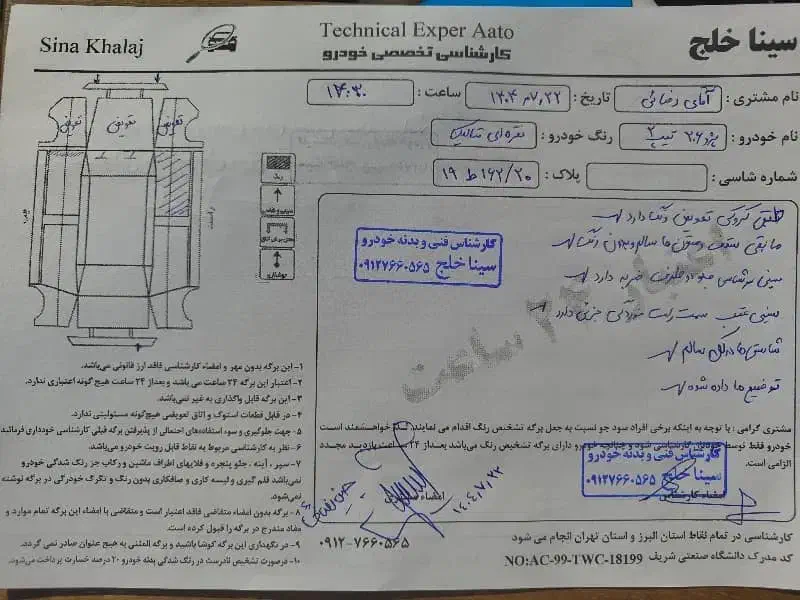 Sina Khalaj
Technical Exper Aato
کارشناسی تخصصی خودرو
سینا خلج
نام مشتری : آقای رضائی تاریخ : ۱۴۰۴/۷/۲۲ ساعت : ۱۴:۳۰
نام خودرو : پژو ۲۰۶ تیپ ۲ رنگ خودرو : نقره ای متالیک
شماره شاسی : پلاک : ۱۶۲/۲۰ ط ۱۹
تعویض
تعویض
تعویض
راست
چپ
رنگ
طبق کروکی تعویض و رنگ دارد
مابقی سقف و ستون ها سالم و بدون رنگ
سینی ضربه دارد
سینی عقب سمت راست خوردگی جزئی دارد
شاسی ها سالم
توضیح داده شد
اعتبار ۲۴ ساعت
کارشناس فنی و بدنه خودرو
سینا خلج ۰۹۱۲۷۶۶۰۵۶۵
مشتری گرامی : با توجه به اینکه برخی افراد سود جو نسبت به جعل برگه تشخیص رنگ اقدام می نمایند خواهشمند است
خودرو فقط توسط خودتان کارشناسی شود و چنانچه خودرو دارای برگه تشخیص رنگ می‌باشد بعد از ۲۴ ساعت بازدید مجدد
الزامی است.
کارشناس فنی و بدنه خودرو
سینا خلج ۰۹۱۲۷۶۶۰۵۶۵
امضاء کارشناس
امضاء
۱۴۰۴/۷/۲۲
۱- این برگه بدون مهر و امضاء کارشناسی فاقد ارز قانونی می‌باشد.
۲- اعتبار این برگه ۲۴ ساعت می باشد و بعداز ۲۴ ساعت هیچ گونه اعتباری ندارد.
۳- این برگه قابل واگذاری به غیر نمی‌باشد.
۴- در قابل قطعات استوک و اتاق تعویضی هیچ‌گونه مسئولیتی ندارد.
۵- جهت جلوگیری و سوء استفاده‌های احتمالی از پذیرفتن برگه قبلی کارشناسی خودداری فرمائید
۶- نظر به کارشناسی مربوط به نقاط قابل رویت خودرو می‌باشد.
۷- سپر ، آینه ، جلو پنجره و فلاپهای اطراف ماشین و رکاب جز رنگ شدگی خودرو
نمی‌باشد قلم گیری و لیسه کاری و صافکاری بدون رنگ و تگرگ خودرگی در برگه نوشته
نمی‌شود.
۸- برگه بدون امضاء متقاضی فاقد اعتبار است و متقاضی با امضاء این برگه تمام موارد و
مفاد مندرج در برگه را قبول کرده است.
۹- در نگهداری این برگه کوشا باشید و برگه المثنی به هیچ عنوان صادر نمی گردد.
۱۰- درصورت تشخیص نادرست در رنگ شدگی بدنه خودرو ۲۰ درصد خسارت پرداخت می‌شود.
۰۹۱۲-۷۶۶۰۵۶۵
کارشناسی در تمام نقاط استان البرز و استان تهران انجام می شود
کد مدرک دانشگاه صنعتی شریف NO:AC-99-TWC-18199